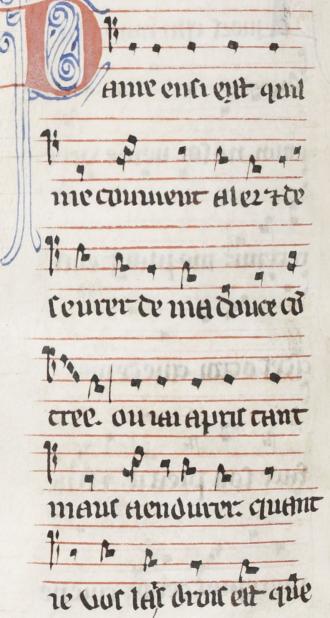 Dame ensi est quil
me couuient aler ⁊ de
seurer de ma douce cō
tree. ou iai apris tant
maus aendurer. quant
ie vos lais drois est